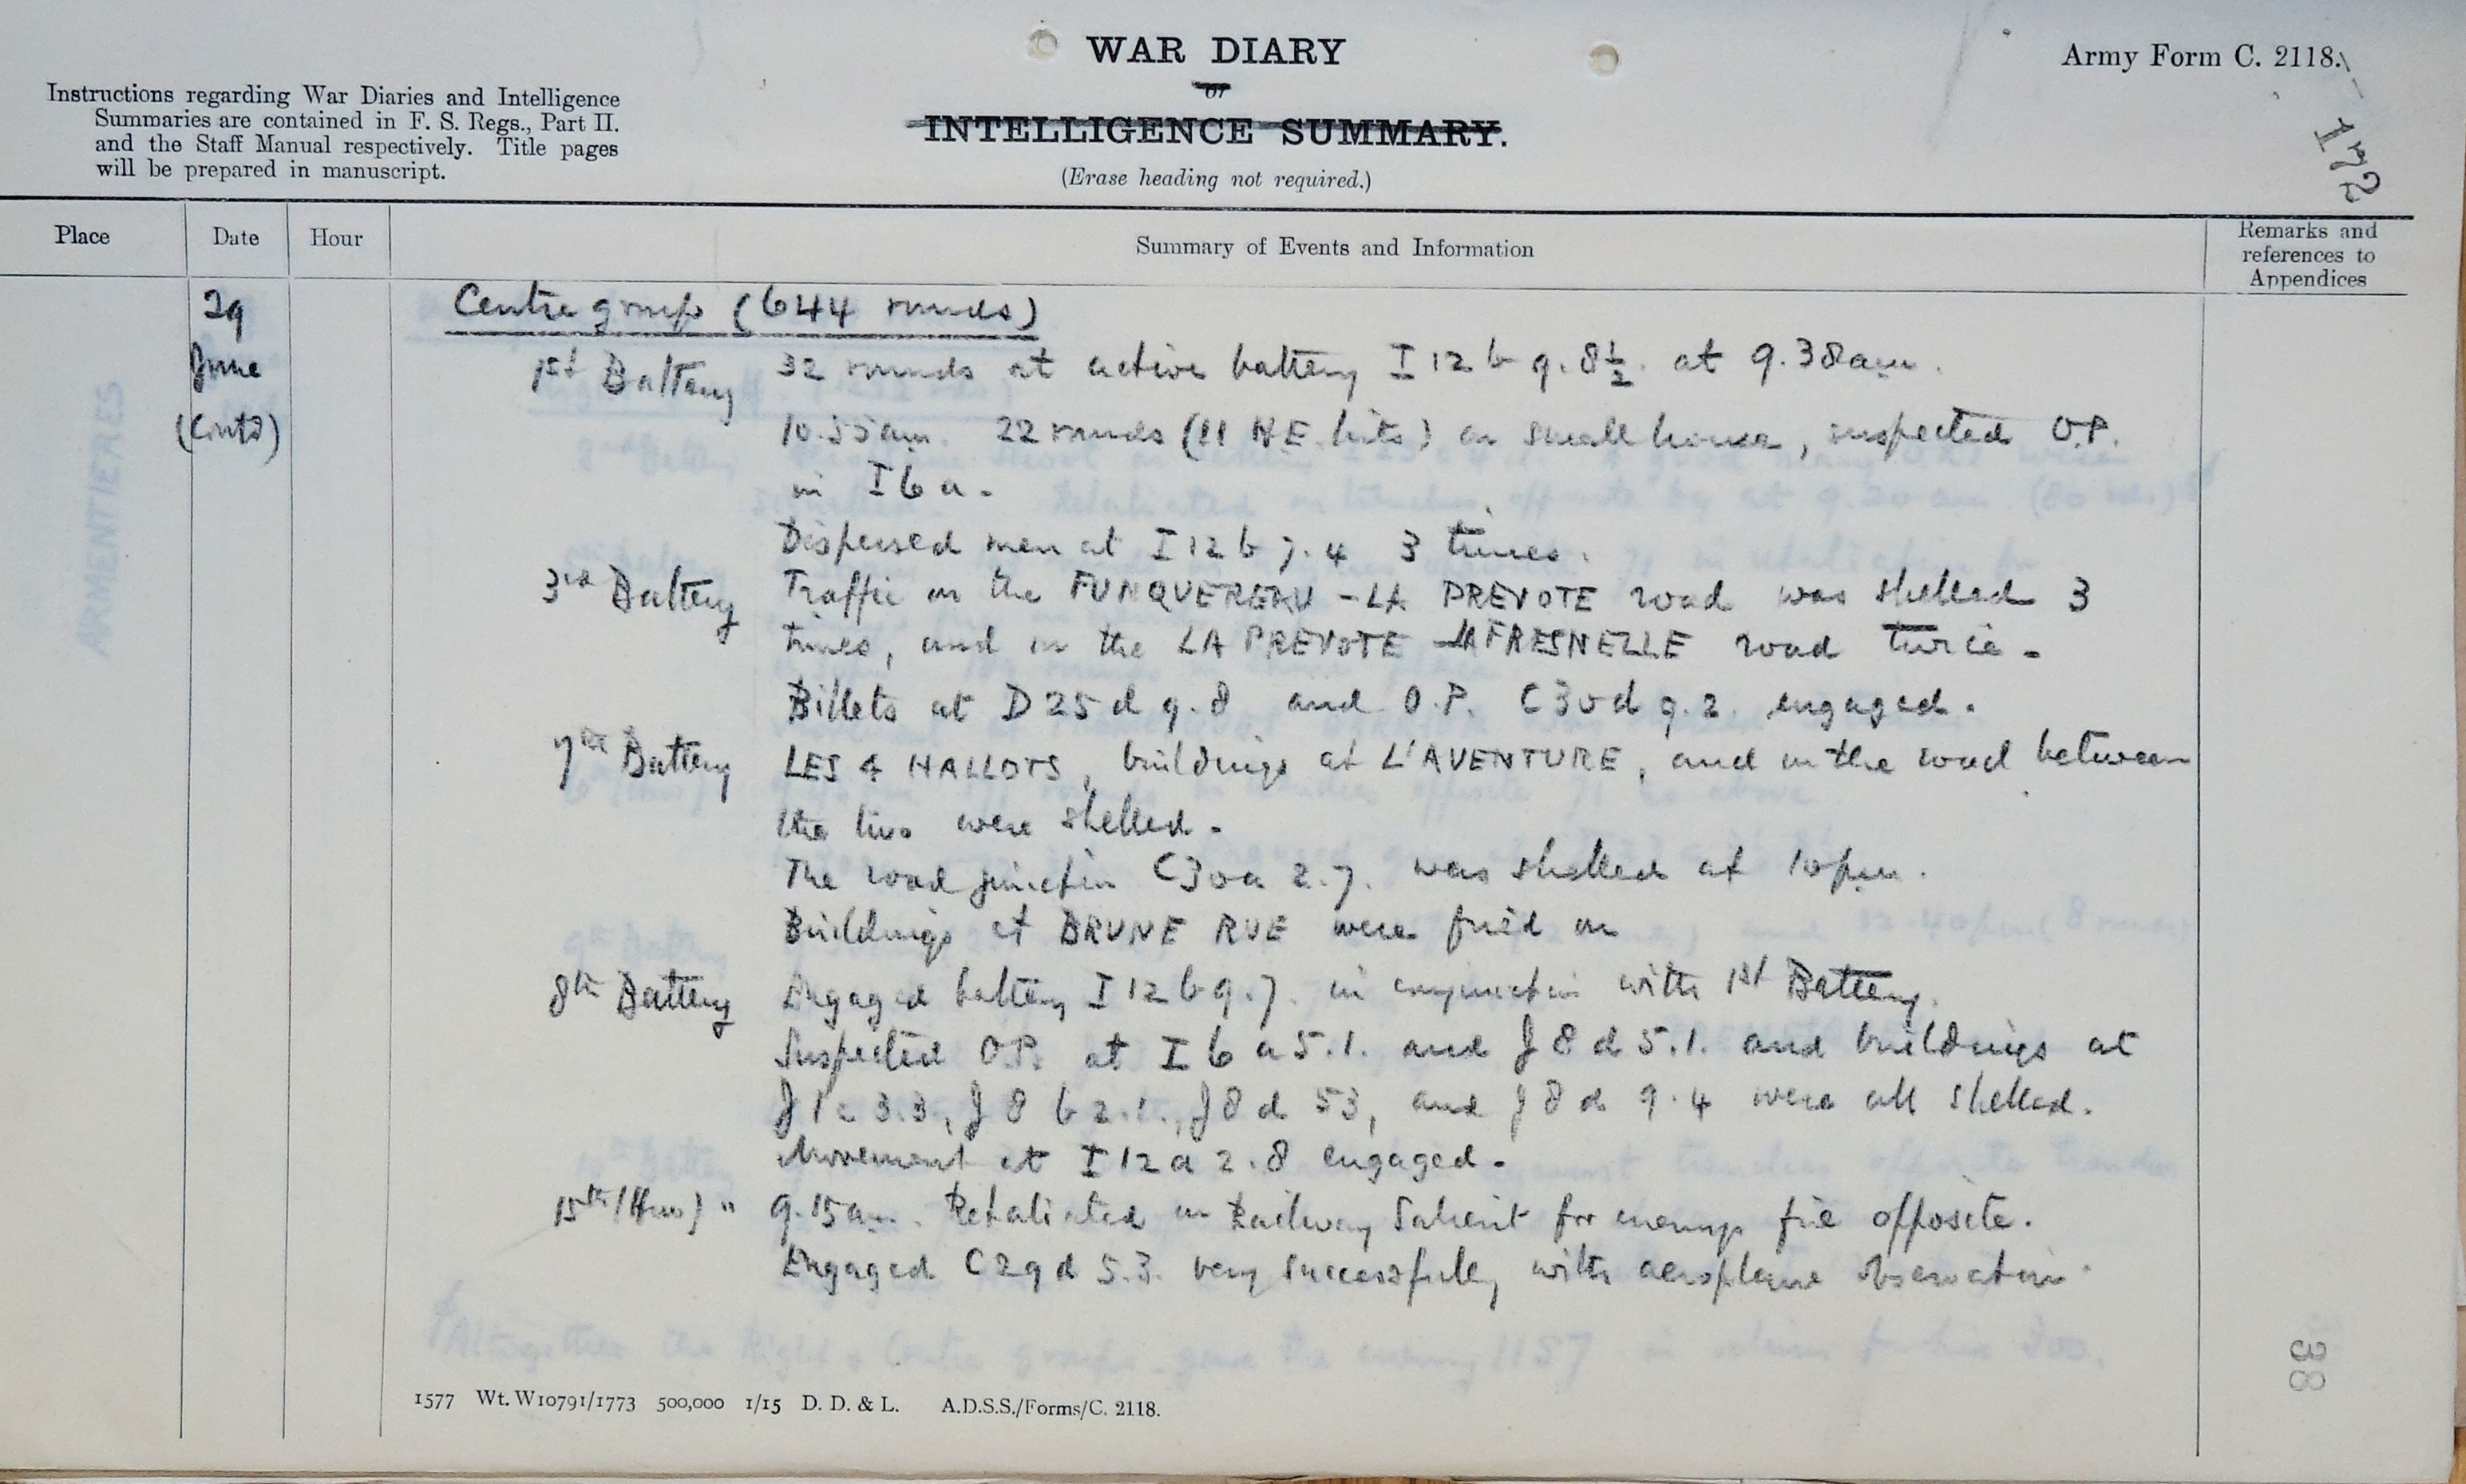 WAR DIARY
or
INTELLIGENCE SUMMARY.
(Erase heading not required.)
Army Form C. 2118.
172
Instructions regarding War Diaries and Intelligence
Summaries are contained in F. S. Regs., Part II.
and the Staff Manual respectively. Title pages
will be prepared in manuscript.
Place Date Hour Summary of Events and Information Remarks and references to Appendices
29
June
(Contd)
Centre group (644 rounds)
1st Battery 32 rounds at active battery I 12 b 9.8½. at 9.38am.
10.55am. 22 rounds (11 H.E. hits) on small house, suspected O.P.
in I 6 a.
Dispersed men at I 12 b 7.4 3 times.
3rd Battery Traffic on the FUNQUEREAU - LA PREVOTE road was shelled 3
times, and on the LA PREVOTE - LA FRESNELLE road twice.
Billets at D 25 d 9.8 and O.P. C 30 d 9.2. engaged.
7th Battery LES 4 HALLOTS, buildings at L'AVENTURE, and on the road between
the two were shelled.
The road junction C 30 a 2.7. was shelled at 10pm.
Buildings at BRUNE RUE were fired on
8th Battery Engaged battery I 12 b 9.7. in conjunction with 1st Battery.
Suspected O.P. at I 6 a 5.1. and J 8 d 5.1. and buildings at
J 1 c 3.3, J 8 b 2.1., J 8 d 53, and J 8 d 9.4 were all shelled.
Movement at I 12 a 2.8 engaged.
15th (How) " 9.15am. Retaliated on Railway Salient for enemy fire opposite.
Engaged C 29 d 5.3. very successfully with aeroplane observation.
38
1577 Wt. W10791/1773 500,000 1/15 D. D. & L. A.D.S.S./Forms/C. 2118.